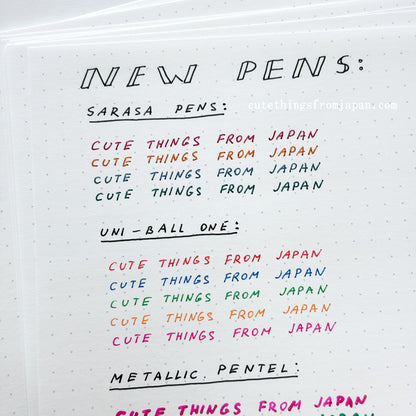 NEW PENS:
cutethingsfromjapan.com
SARASA PENS:
CUTE THINGS FROM JAPAN
CUTE THINGS FROM JAPAN
CUTE THINGS FROM JAPAN
CUTE THINGS FROM JAPAN
UNI-BALL ONE:
CUTE THINGS FROM JAPAN
CUTE THINGS FROM JAPAN
CUTE THINGS FROM JAPAN
CUTE THINGS FROM JAPAN
CUTE THINGS FROM JAPAN
METALLIC PENTEL:
CUTE THINGS FROM JAPAN